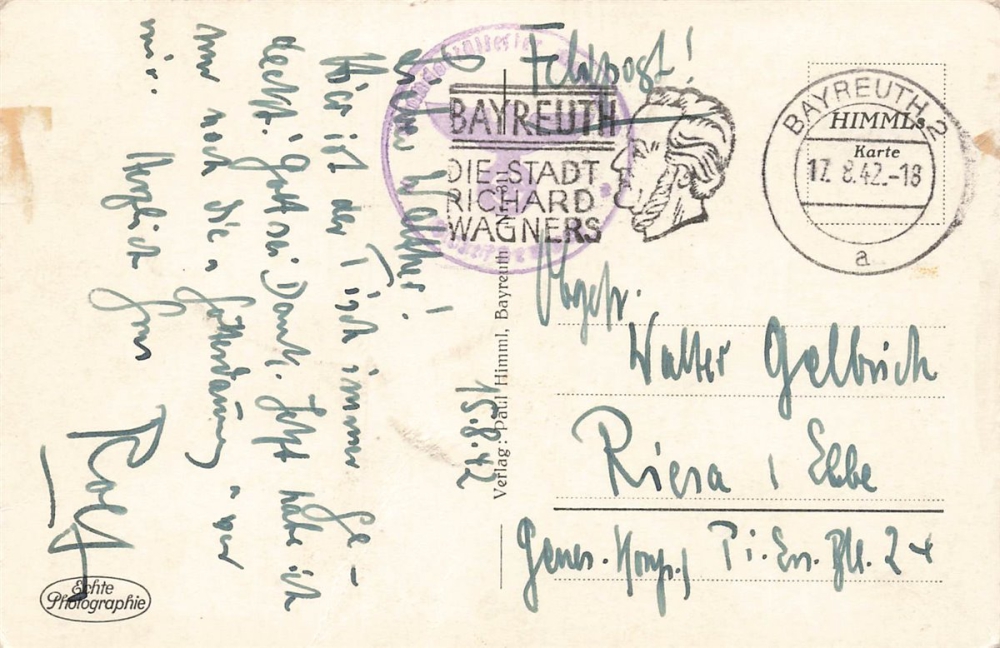 Feldpost!
BAYREUTH
DIE STADT
RICHARD
WAGNERS
BAYREUTH 2
17.8.42.-18
a
HIMML
Karte
15.8.42
Walther!
Hier ist der Tisch immer ge-
deckt. Gott sei Dank. Jetzt habe ich
nur noch die „ “ vor
mir. Herzlich Dein
Rolf
Verlag: Paul Himml, Bayreuth
Walter Gelbrich
Riesa / Elbe
Genes.-Komp., Pi. Ers. Btl. 24
Echte
Photographie